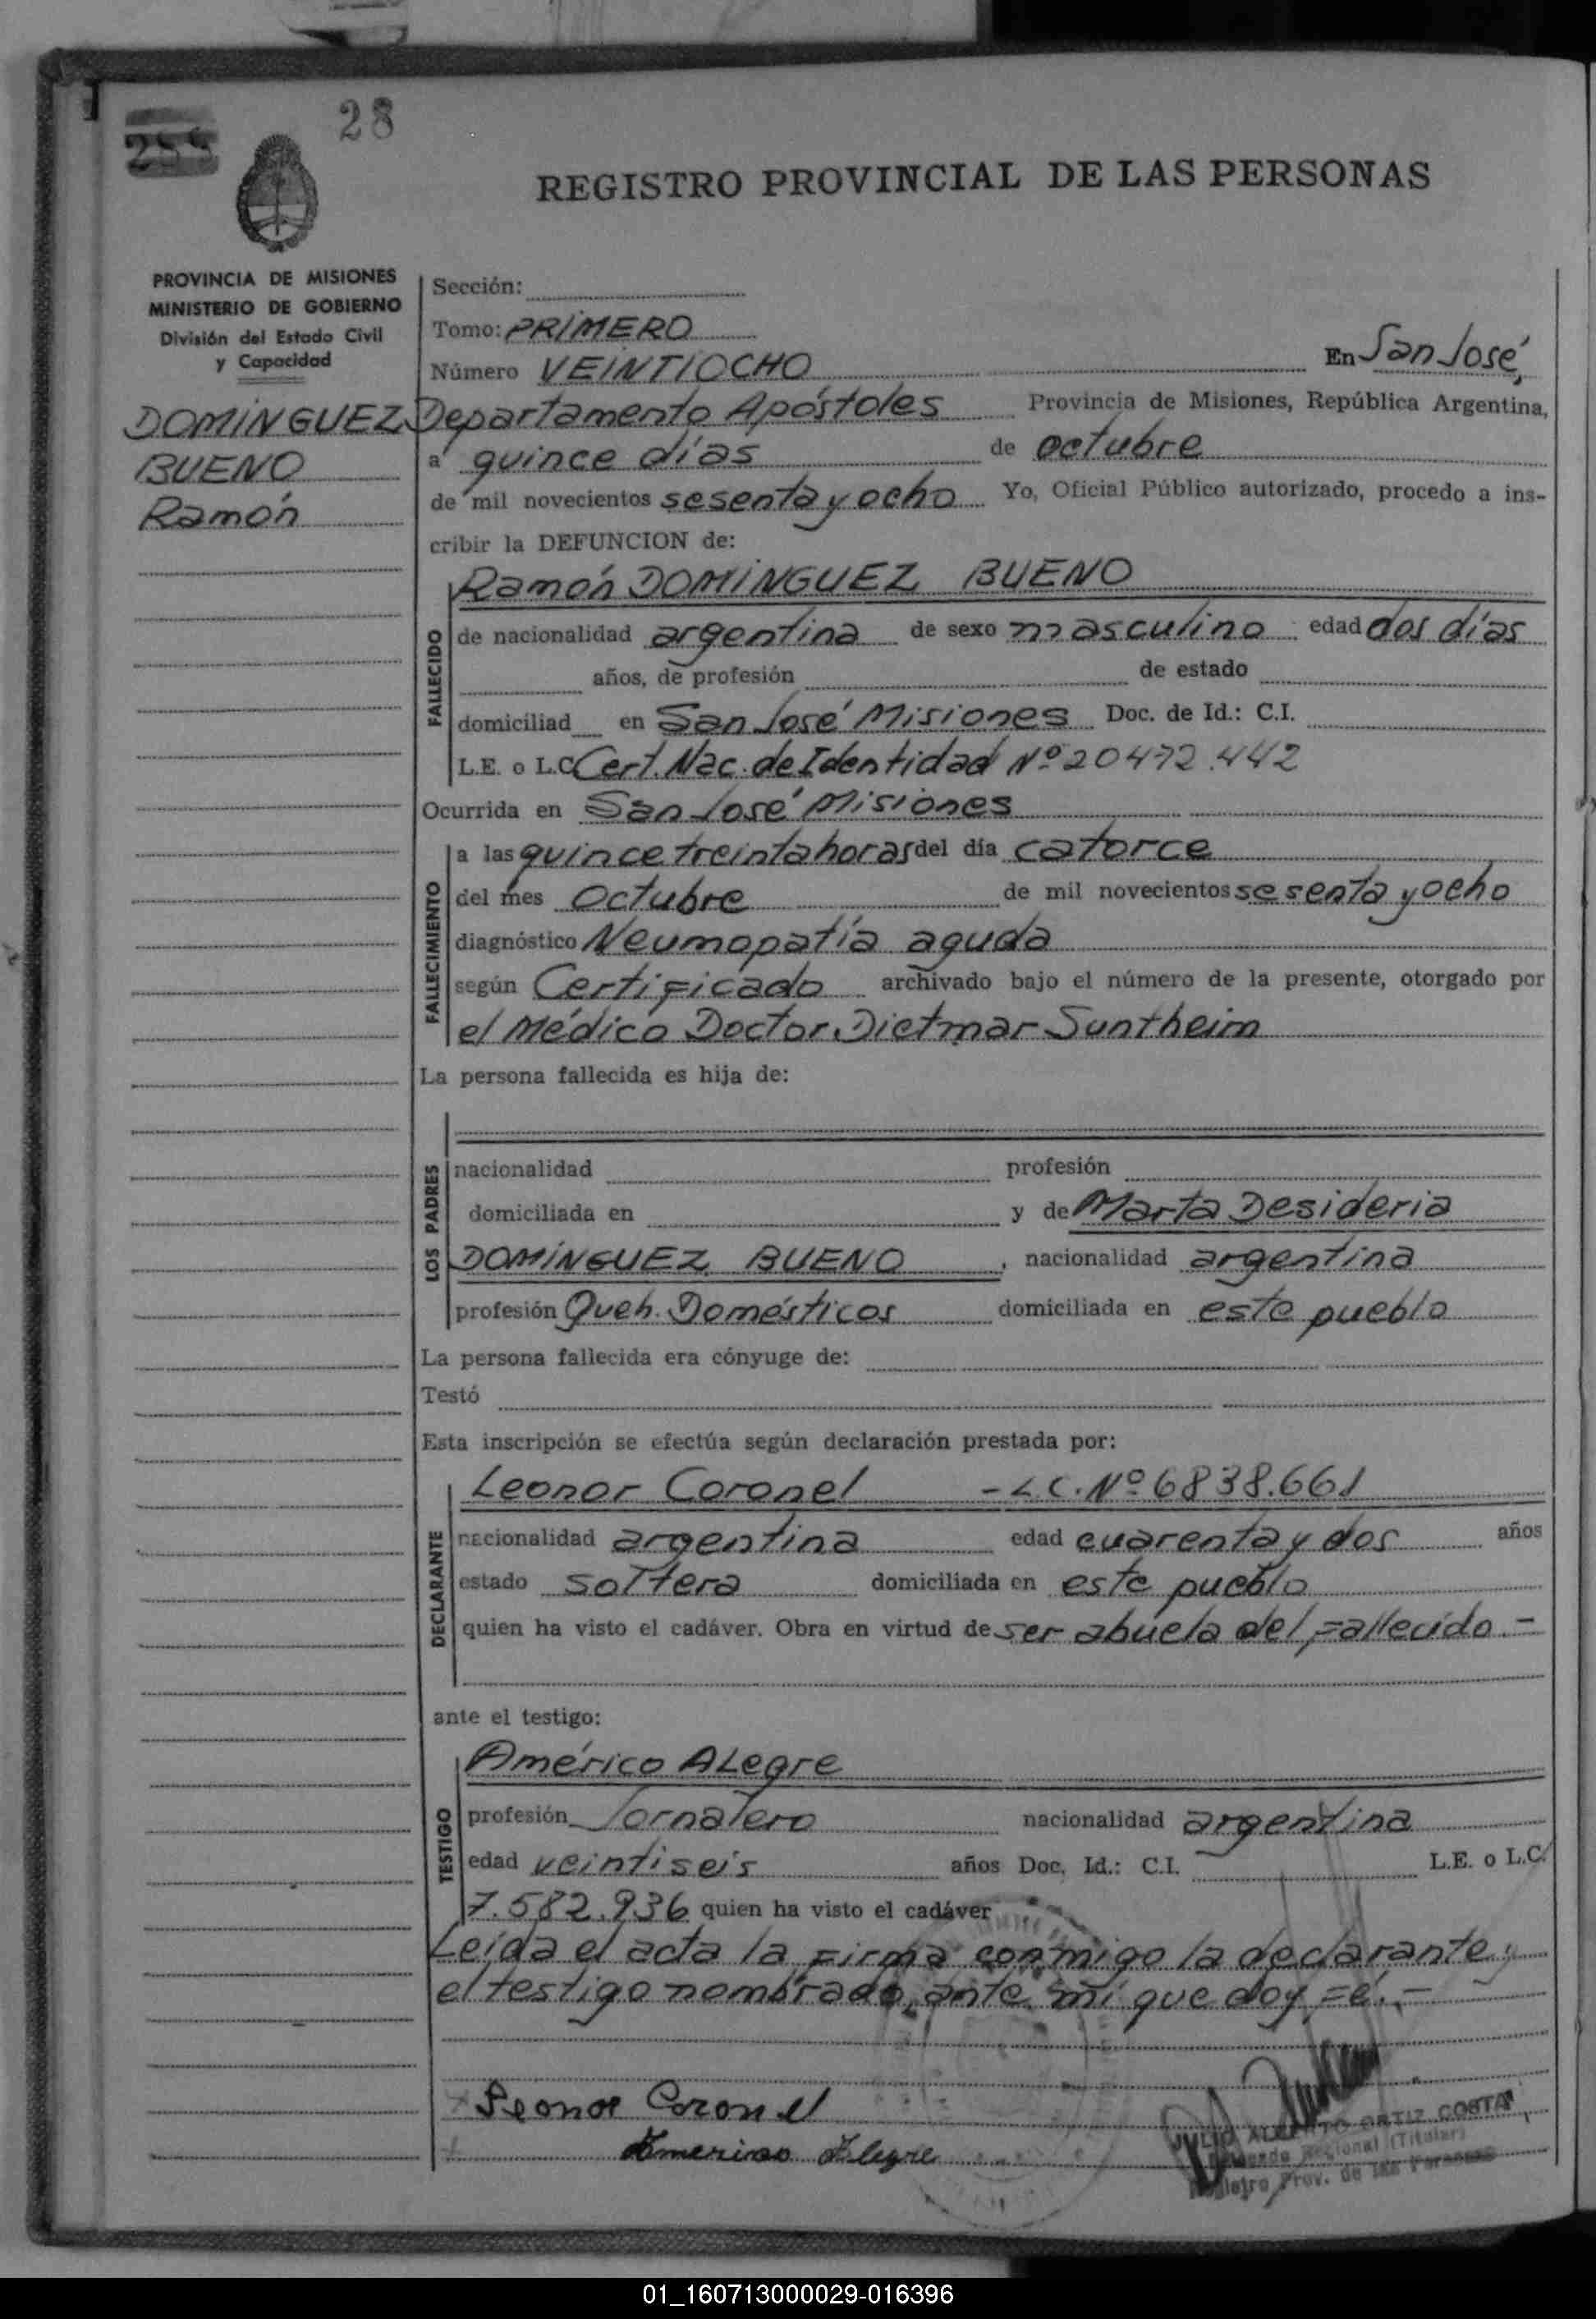 28
255
REGISTRO PROVINCIAL DE LAS PERSONAS
PROVINCIA DE MISIONES
MINISTERIO DE GOBIERNO
División del Estado Civil
y Capacidad
DOMÍNGUEZ
BUENO
Ramón
Sección:
Tomo: PRIMERO
Número VEINTIOCHO En San José,
Departamento Apóstoles Provincia de Misiones, República Argentina,
a quince días de octubre
de mil novecientos sesenta y ocho Yo, Oficial Público autorizado, procedo a ins-
cribir la DEFUNCION de:
Ramón DOMÍNGUEZ BUENO
FALLECIDO
de nacionalidad argentina de sexo masculino edad dos días
años, de profesión de estado
domiciliad en San José Misiones Doc. de Id.: C.I.
L.E. o L.C. Cert. Nac. de Identidad Nº 20472.442
Ocurrida en San José Misiones
FALLECIMIENTO
a las quince treinta horas del día catorce
del mes octubre de mil novecientos sesenta y ocho
diagnóstico Neumopatía aguda
según Certificado archivado bajo el número de la presente, otorgado por
el Médico Doctor Dietmar Suntheim
La persona fallecida es hija de:
LOS PADRES
nacionalidad profesión
domiciliada en y de Marta Desideria
DOMÍNGUEZ BUENO, nacionalidad argentina
profesión Queh. Domésticos domiciliada en este pueblo
La persona fallecida era cónyuge de:
Testó
Esta inscripción se efectúa según declaración prestada por:
Leonor Coronel - L.C. Nº 6838.661
DECLARANTE
nacionalidad argentina edad cuarenta y dos años
estado soltera domiciliada en este pueblo
quien ha visto el cadáver. Obra en virtud de ser abuela del fallecido.-
ante el testigo:
Américo ALegre
TESTIGO
profesión Jornalero nacionalidad argentina
edad veintiseis años Doc. Id.: C.I. L.E. o L.C.
7.582.936 quien ha visto el cadáver
Leída el acta la firma conmigo la declarante y
el testigo nombrado, ante mí que doy fé.-
Leonor Coronel
Americo Alegre
JULIO ALBERTO ORTIZ COSTA
Delegado Regional (Titular)
Registro Prov. de las Personas
01_160713000029-016396